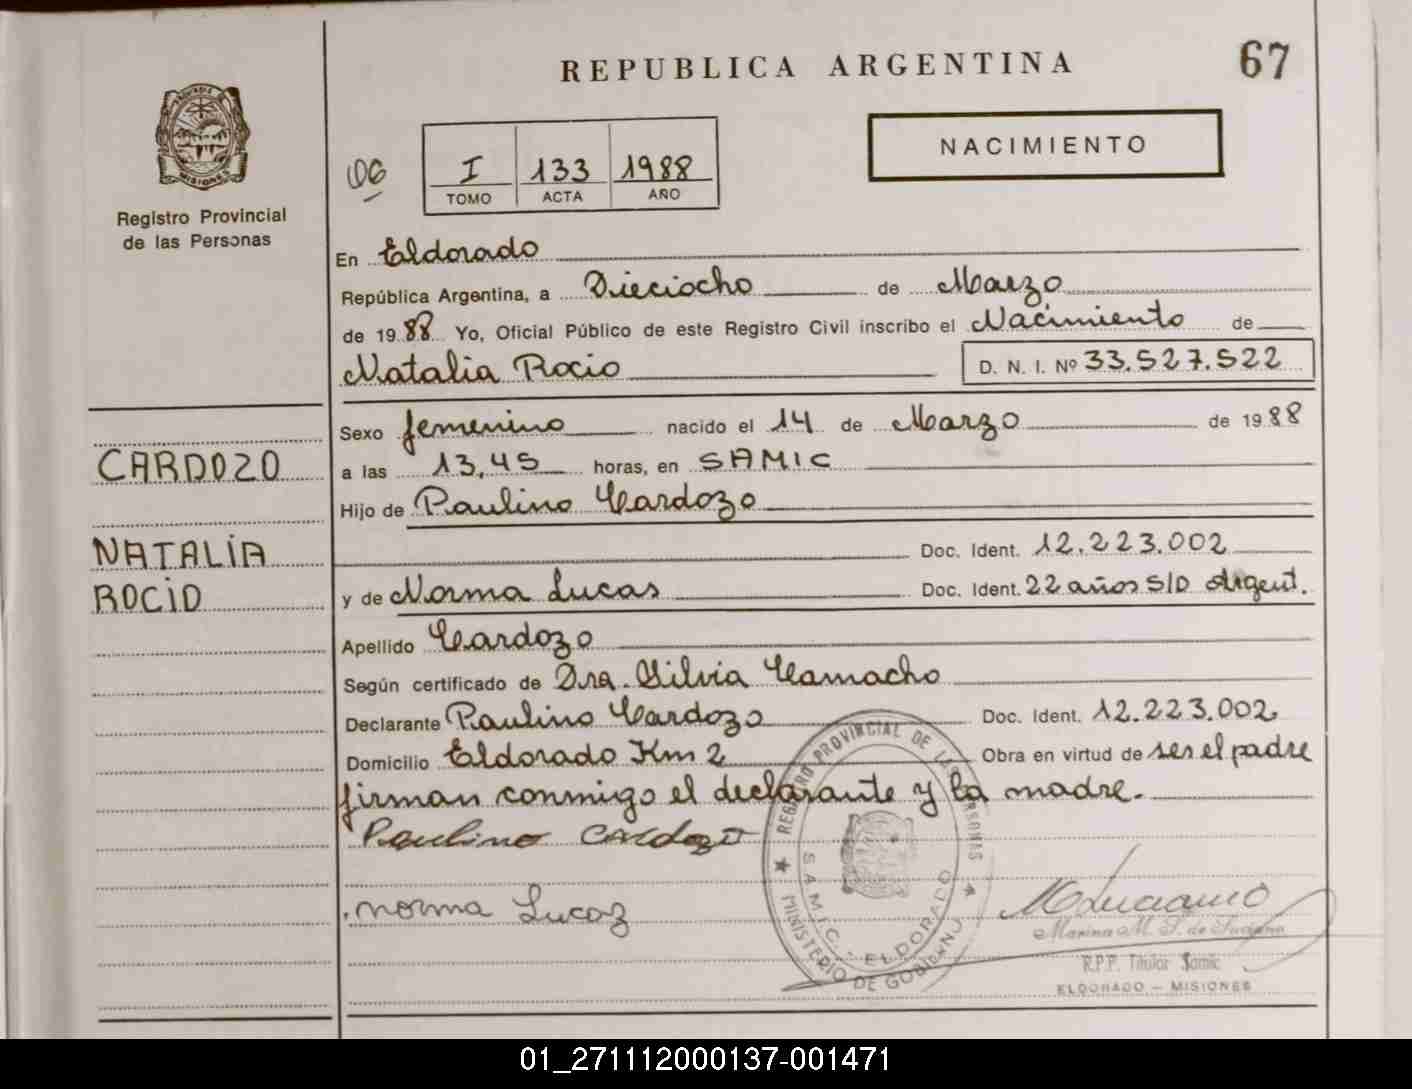 REPUBLICA ARGENTINA
67
MISIONES
Registro Provincial
de las Personas
I 133 1988
TOMO ACTA AÑO
NACIMIENTO
En Eldorado
República Argentina, a Dieciocho de Marzo
de 1988 Yo, Oficial Público de este Registro Civil inscribo el Nacimiento de
Natalia Rocio D. N. I. Nº 33.527.522
CARDOZO
NATALIA
ROCIO
Sexo femenino nacido el 14 de Marzo de 1988
a las 13,45 horas, en SAMIC
Hijo de Paulino Cardozo
Doc. Ident. 12.223.002
y de Norma Lucas Doc. Ident. 22 años S/D Argent.
Apellido Cardozo
Según certificado de Dra. Silvia Camacho
Declarante Paulino Cardozo Doc. Ident. 12.223.002
Domicilio Eldorado Km 2 Obra en virtud de ser el padre
firman conmigo el declarante y la madre.
Paulino Cardozo
norma Lucaz
REGISTRO PROVINCIAL DE LAS PERSONAS
S.A.M.I.C. - ELDORADO
MINISTERIO DE GOBIERNO
Marina M. S. de
R.P.P. Titular Samic
ELDORADO - MISIONES
01_271112000137-001471